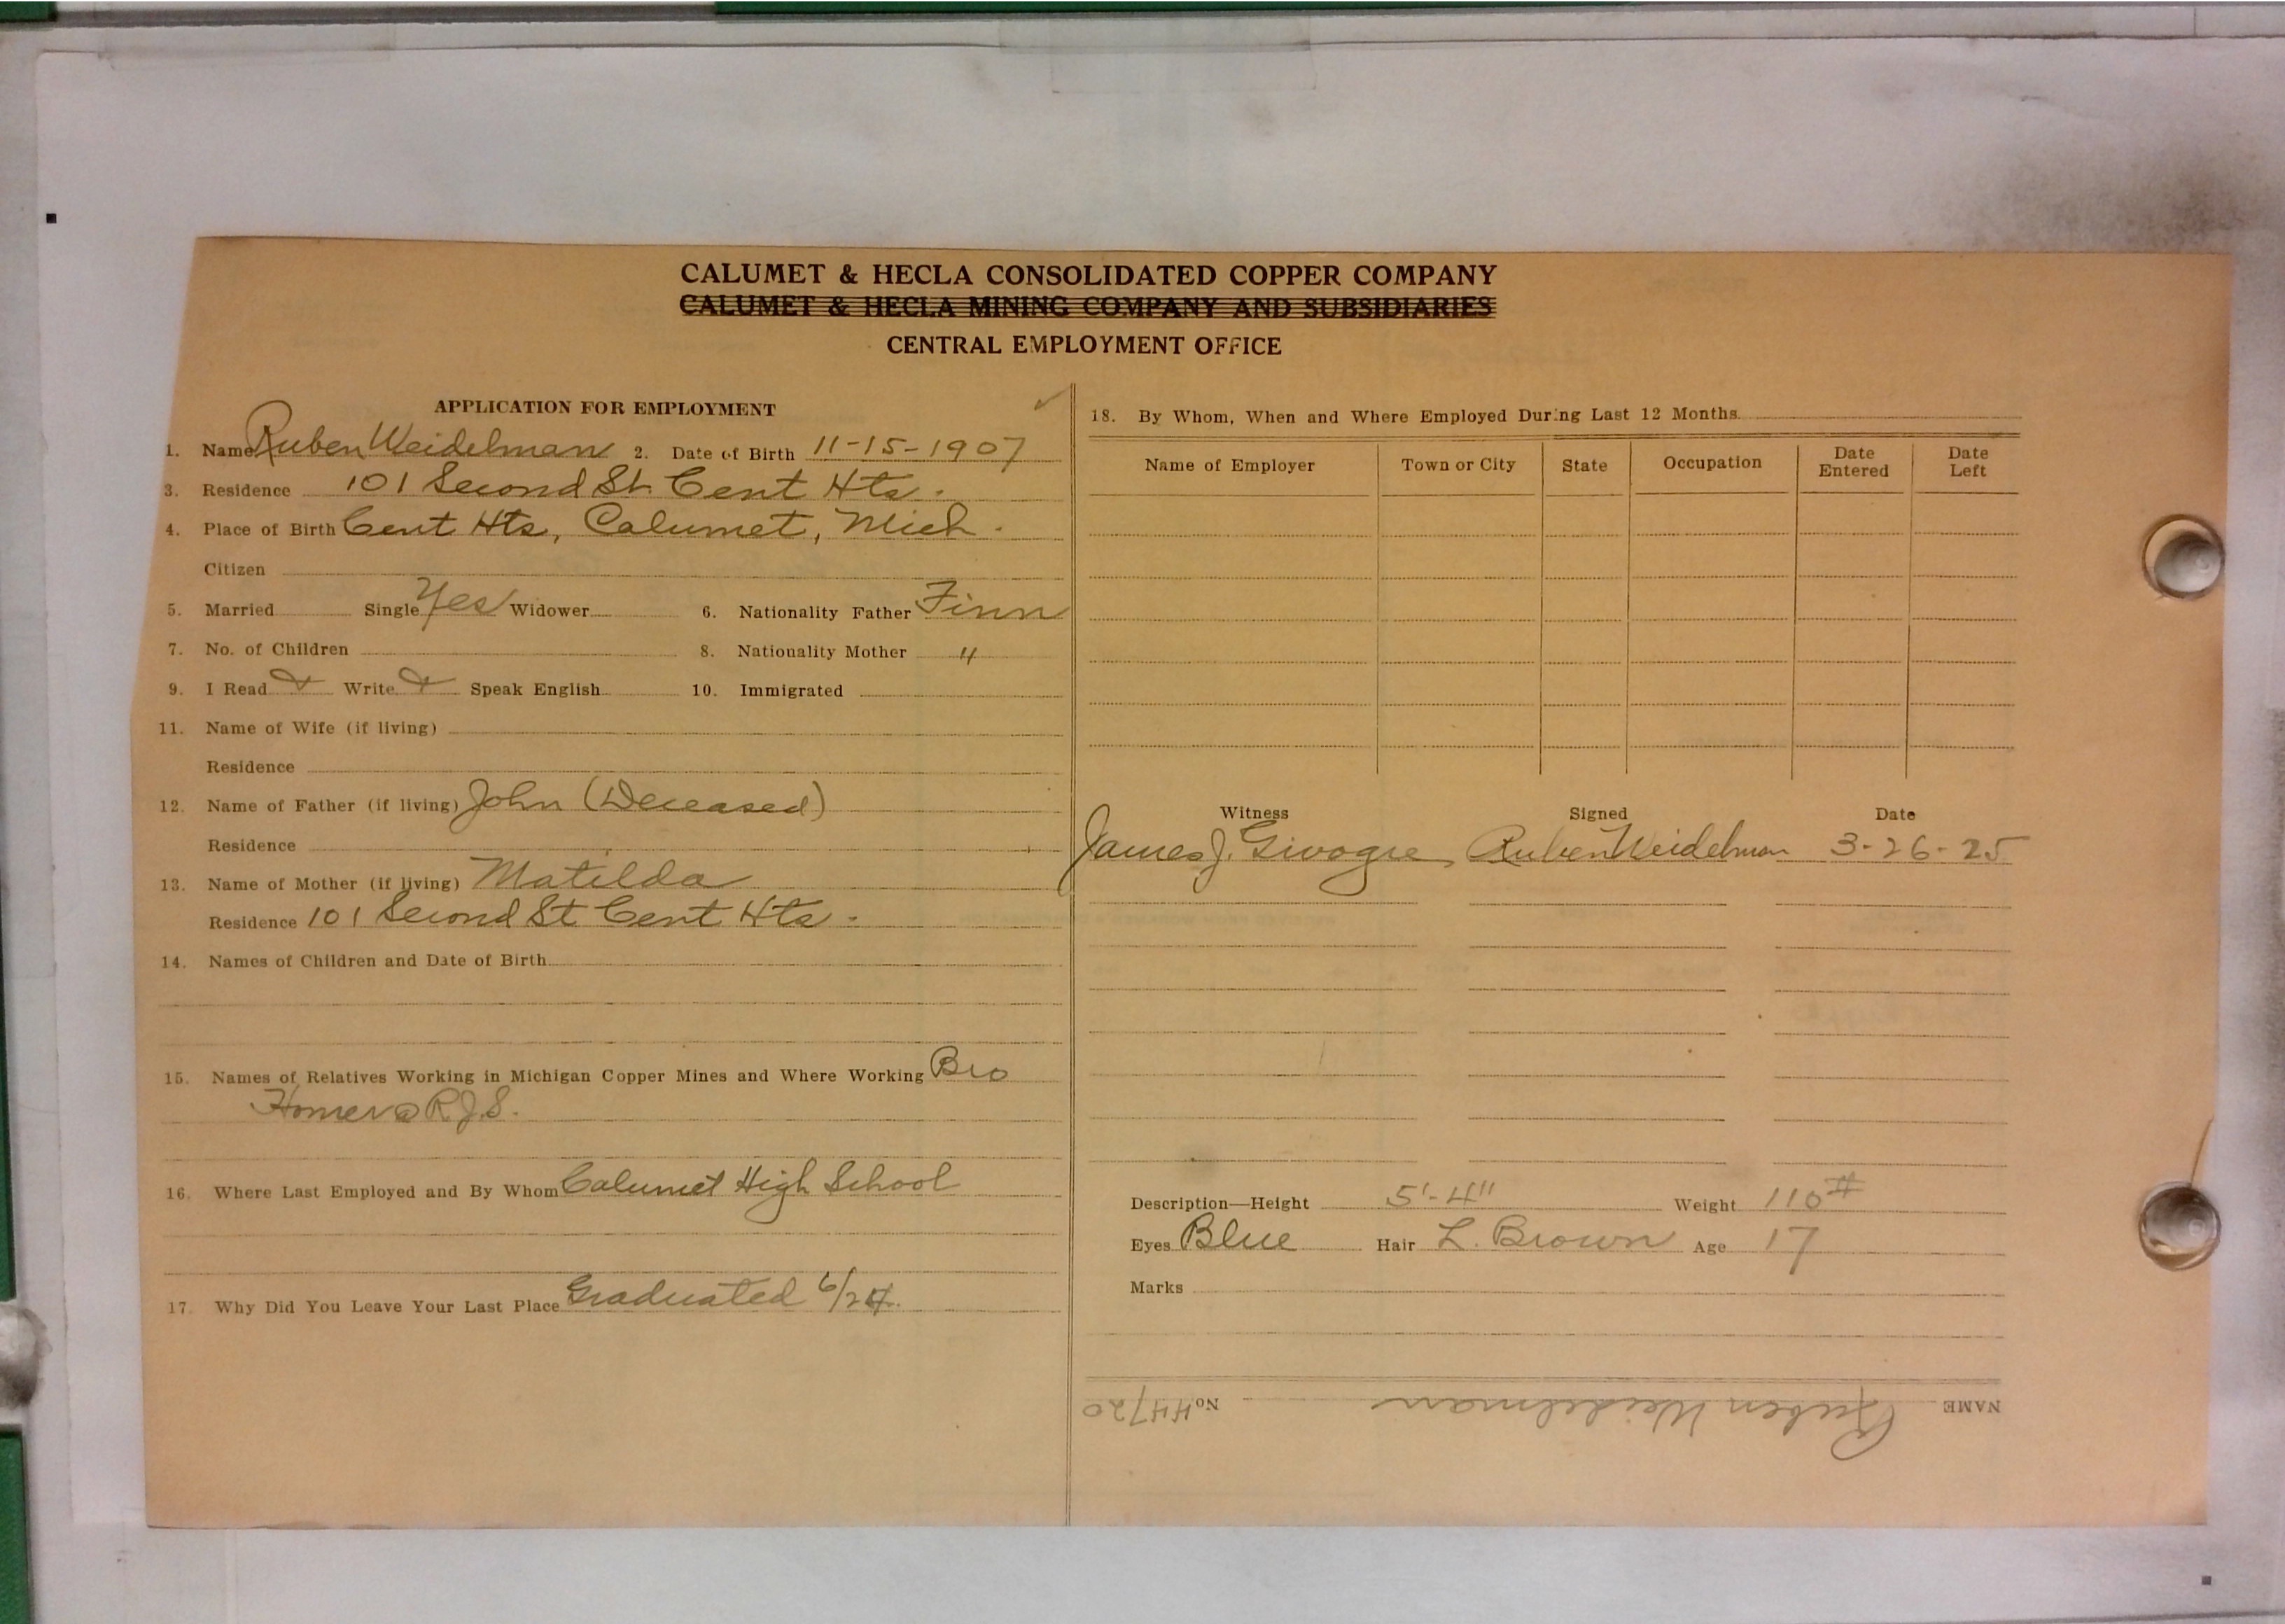 CALUMET & HECLA CONSOLIDATED COPPER COMPANY
CALUMET & HECLA MINING COMPANY AND SUBSIDIARIES
CENTRAL EMPLOYMENT OFFICE
APPLICATION FOR EMPLOYMENT
1. Name Ruben Weidelman 2. Date of Birth 11-15-1907
3. Residence 101 Second St. Cent Hts.
4. Place of Birth Cent Hts, Calumet, Mich.
Citizen
5. Married Single Yes Widower 6. Nationality Father Finn
7. No. of Children 8. Nationality Mother "
9. I Read Write Speak English 10. Immigrated
11. Name of Wife (if living)
Residence
12. Name of Father (if living) John (Deceased)
Residence
13. Name of Mother (if living) Matilda
Residence 101 Second St Cent Hts.
14. Names of Children and Date of Birth
15. Names of Relatives Working in Michigan Copper Mines and Where Working Bro
Homer @ R.J.S.
16. Where Last Employed and By Whom Calumet High School
17. Why Did You Leave Your Last Place Graduated 6/24.
18. By Whom, When and Where Employed During Last 12 Months.
Name of Employer Town or City State Occupation Date Entered Date Left
Witness Signed Date
James J. Ruben Weidelman 3-26-25
Description—Height 5'-4" Weight 110#
Eyes Blue Hair L. Brown Age 17
Marks
NAME Ruben Weidelman No. 44720